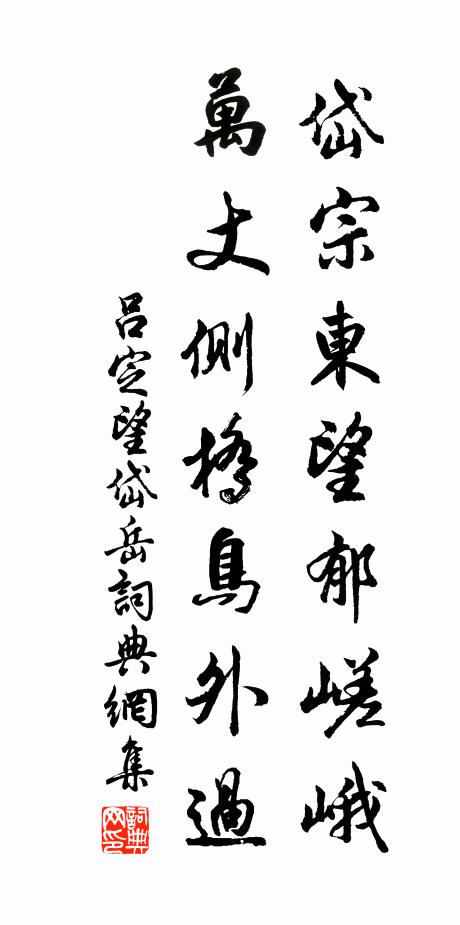 岱宗東望郁嵯峨
萬丈側橋鳥外過
呂定望岱岳詞典網集
詞典網印